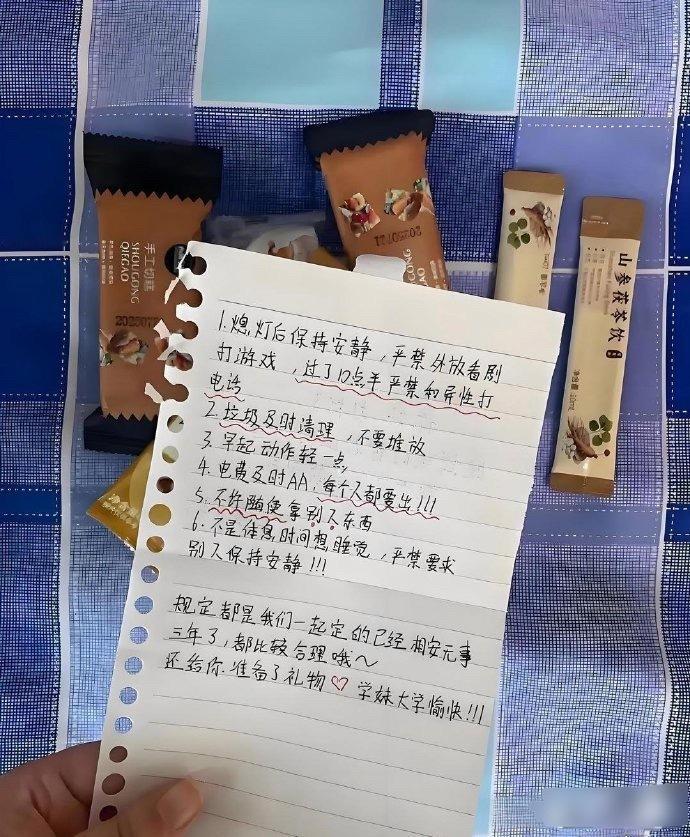 手工切糕
SHOUGONG
QIEGAO
20250711
GONG
GAO
20250711
山参茯苓饮
1.熄灯后保持安静，严禁外放看剧
打游戏，过了10点半严禁和异性打
电话
2.垃圾及时清理，不要堆放
3.早起动作轻一点
4.电费及时AA，每个人都要出!!!
5.不许随便拿别人东西
6.不是休息时间想睡觉，严禁要求
别人保持安静!!!
规定都是我们一起定的已经相安无事
三年了，都比较合理哦～
还给你准备了礼物♡ 学妹大学愉快!!!